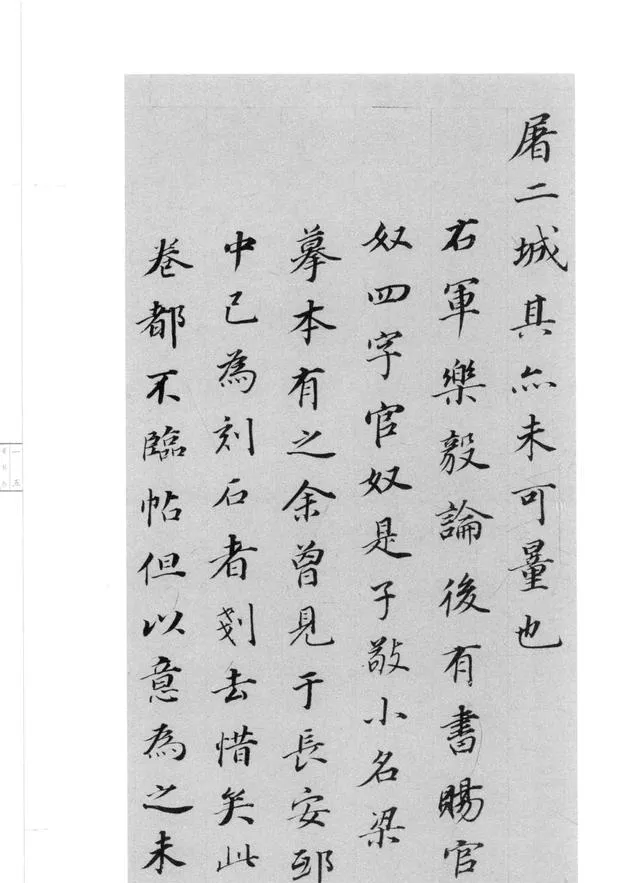 屠二城其亦未可量也
右軍樂毅論後有書賜官
奴四字官奴是子敬小名梁
摹本有之余曾見于長安邸
中已為刻石者剗去惜矣此
卷都不臨帖但以意為之未